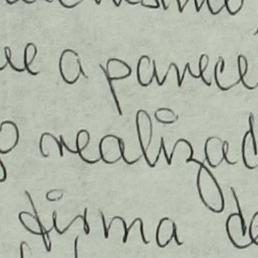 ue aparece
o realizad
firma de